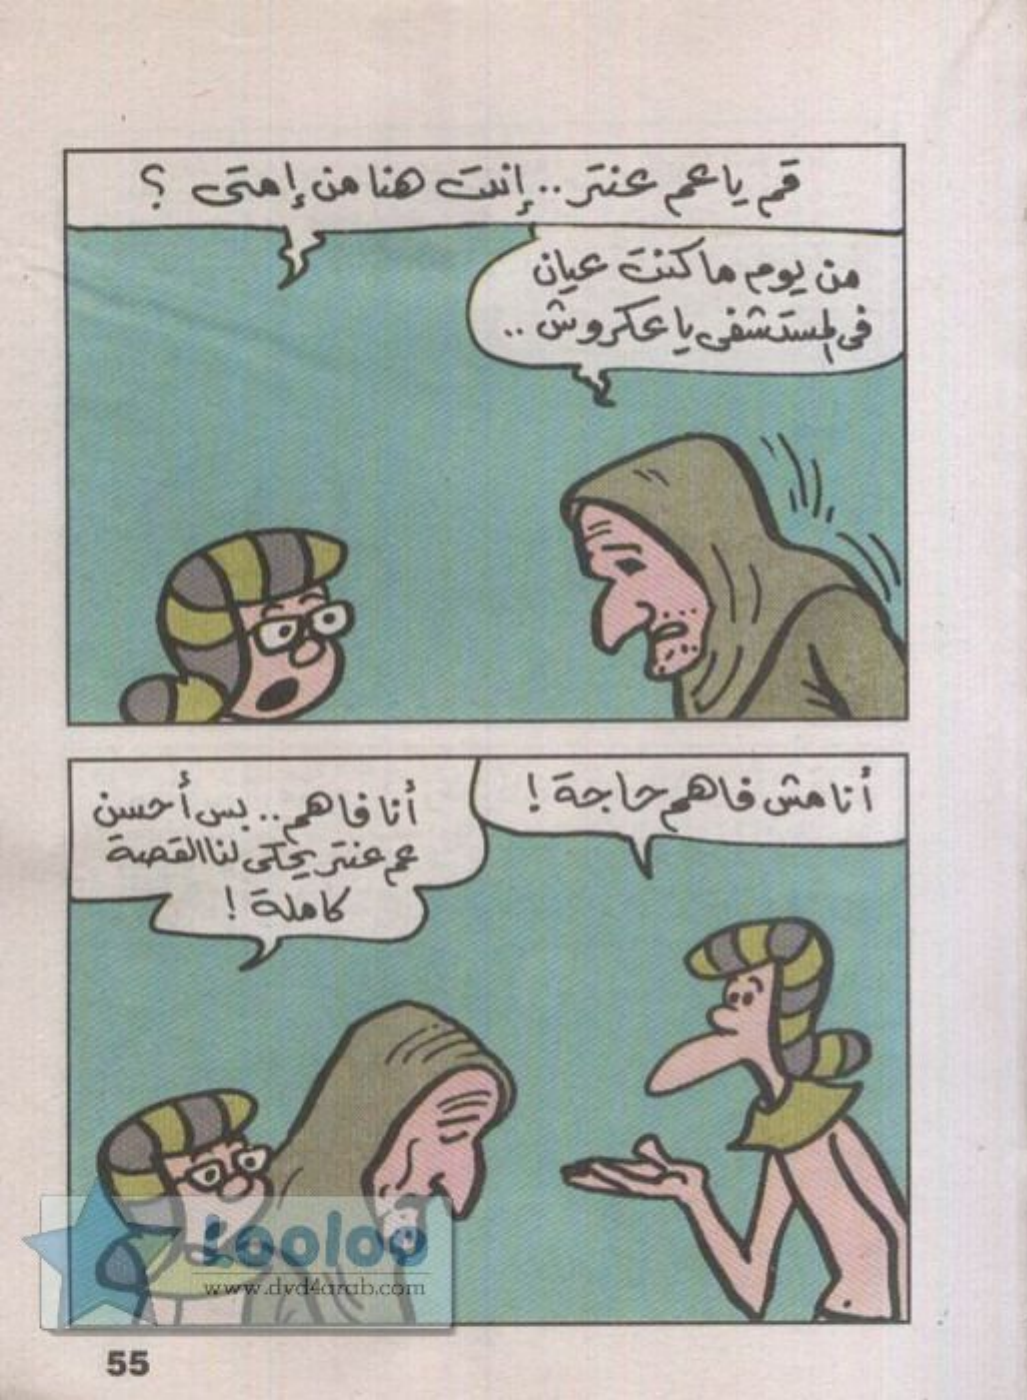 قم يا عم عنتر .. إنت هنا من إمتى ؟
من يوم ما كنت عيان
فى المستشفى يا عكروش ..
أنا مش فاهم حاجة !
أنا فاهم .. بس أحسن
عم عنتر يحكى لنا القصة
كاملة !
Looloo
www.dvd4arab.com
55